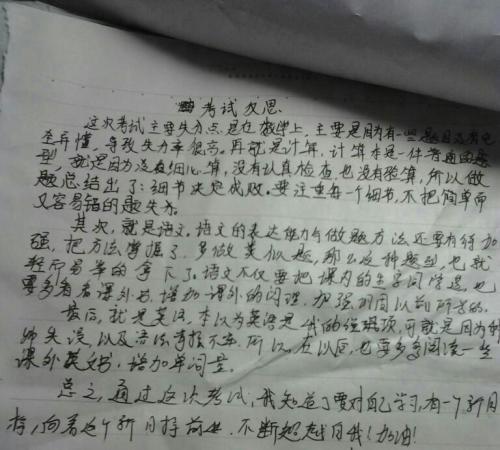 考试反思
这次考试主要失分点是在数学上,主要是因为有一些题目没有完
全弄懂,导致失分率很高,再就是计算,计算本是一件普通的题
型,就是因为没有细心算,没有认真检查,也没有验算,所以做
题总结出了:细节决定成败,要注重每一个细节,不把简单而
又容易错的题失分。
其次,就是语文,语文的表达能力与做题方法还要有待加
强,把方法掌握了,多做类似题,那么这种题型也就
轻而易举的拿下了,语文不仅要把课内的生字词掌握,也
要多看看课外书,增加课外的阅读,加强巩固以前所学的。
最后,就是英语,本以为英语是我的强项,可就是因为
失误,以及语法掌握不牢,所以,在以后,也要多多阅读一些
课外英文书,增加单词量。
总之,通过这次考试,我知道了要对自己学习,有一个新目
标,向着这个新目标前进,不断超越自我!加油!